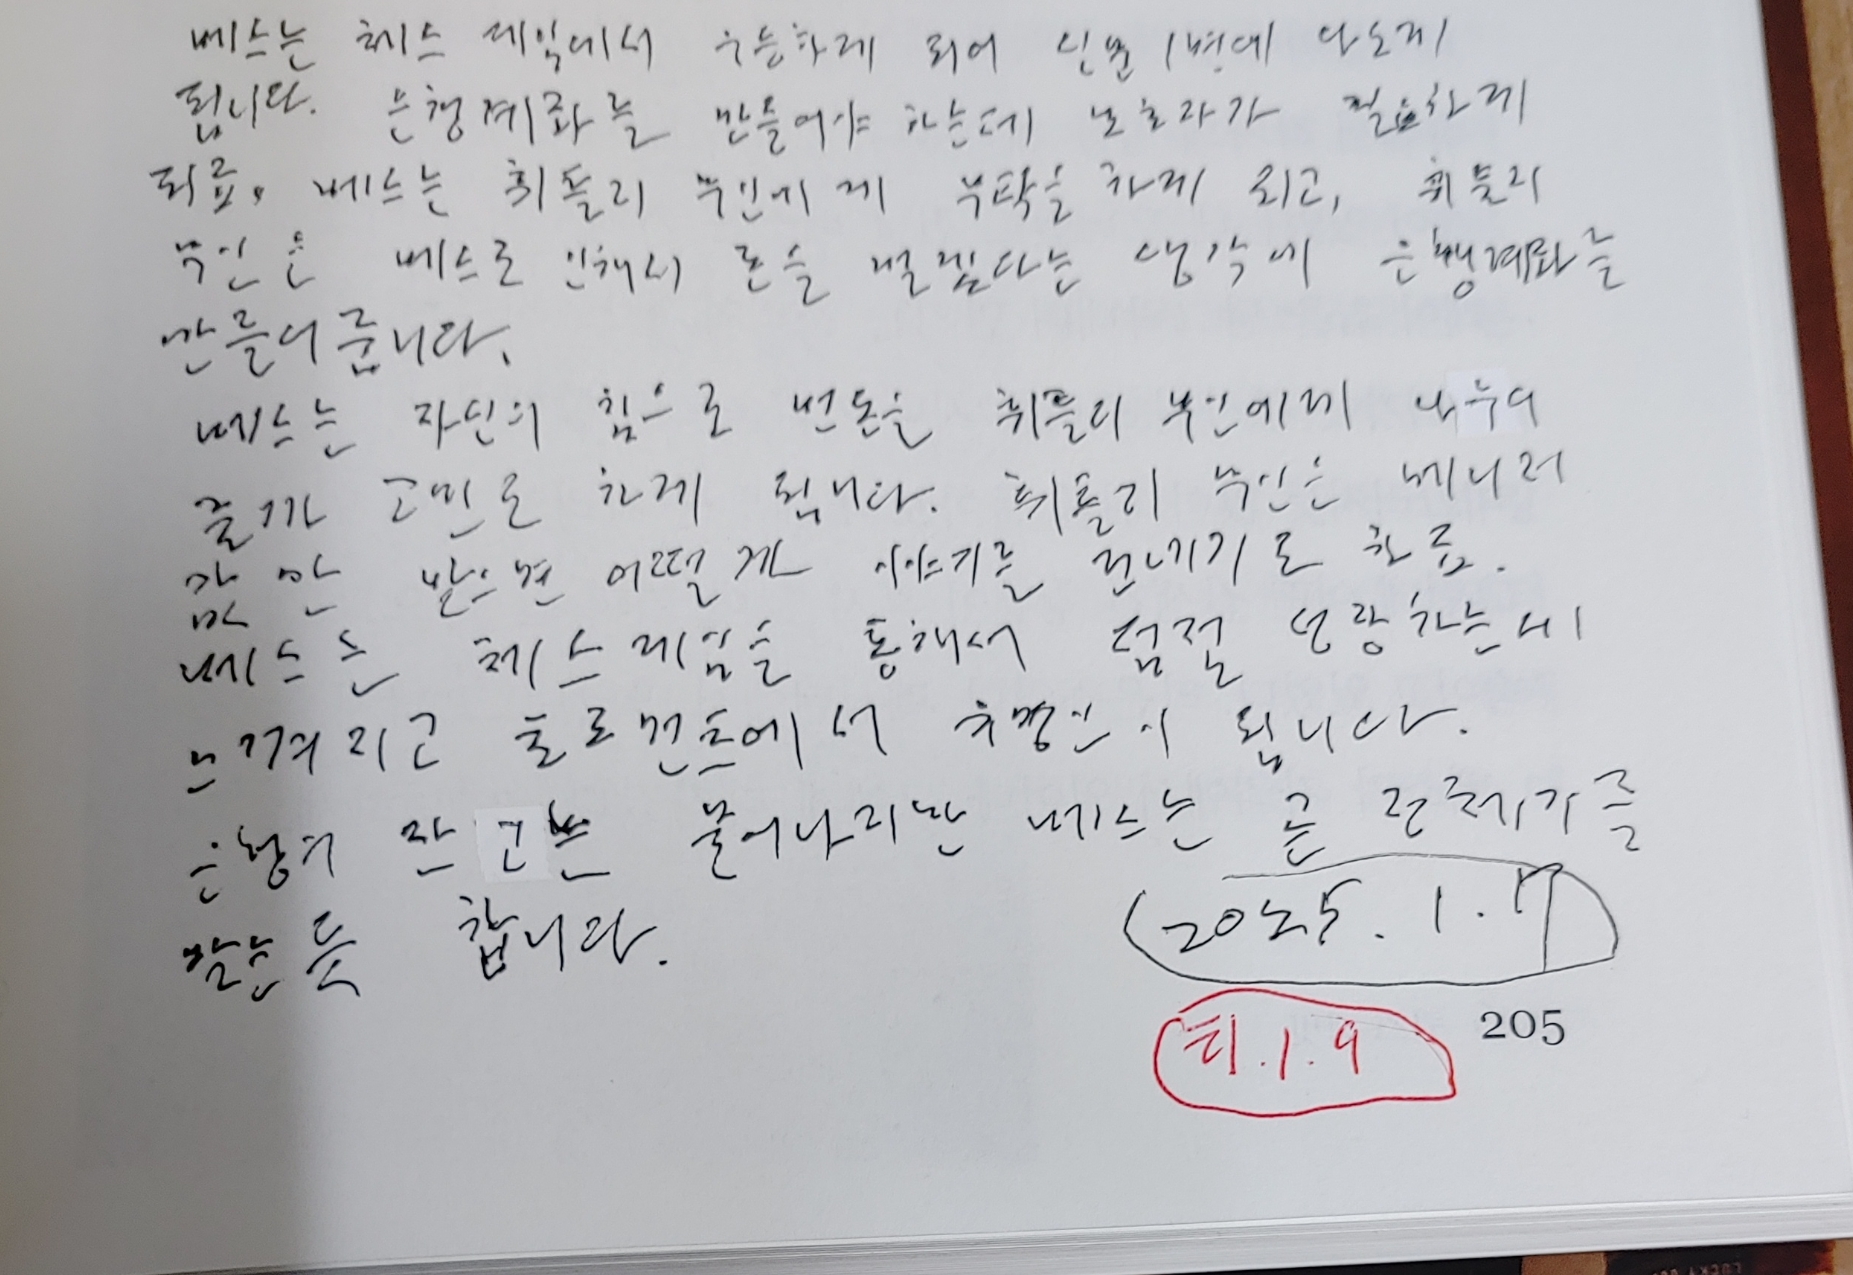 베스는 체스 게임에서 우승하게 되어 신문 1면에 나오게
됩니다. 은행계좌를 만들어야 하는데 보호자가 필요하게
되죠. 베스는 휘틀리 부인에게 부탁을 하게 되고, 휘틀리
부인은 베스로 인해서 돈을 벌겠다는 생각에 은행계좌를
만들어 줍니다.
베스는 자신의 힘으로 번돈을 휘틀리 부인에게 나누어
줄까 고민도 하게 됩니다. 휘틀리 부인은 매니저
값만 받으면 어떻게 이야기를 건내기도 하죠.
베스는 체스게임을 통해서 점점 성장하는게
느껴지고 토로먼트에서 유명인이 됩니다.
은행의 잔고는 불어나지만 베스는 곧 전체가를
받는듯 합니다.
2025. 1. 17
티.1.9
205